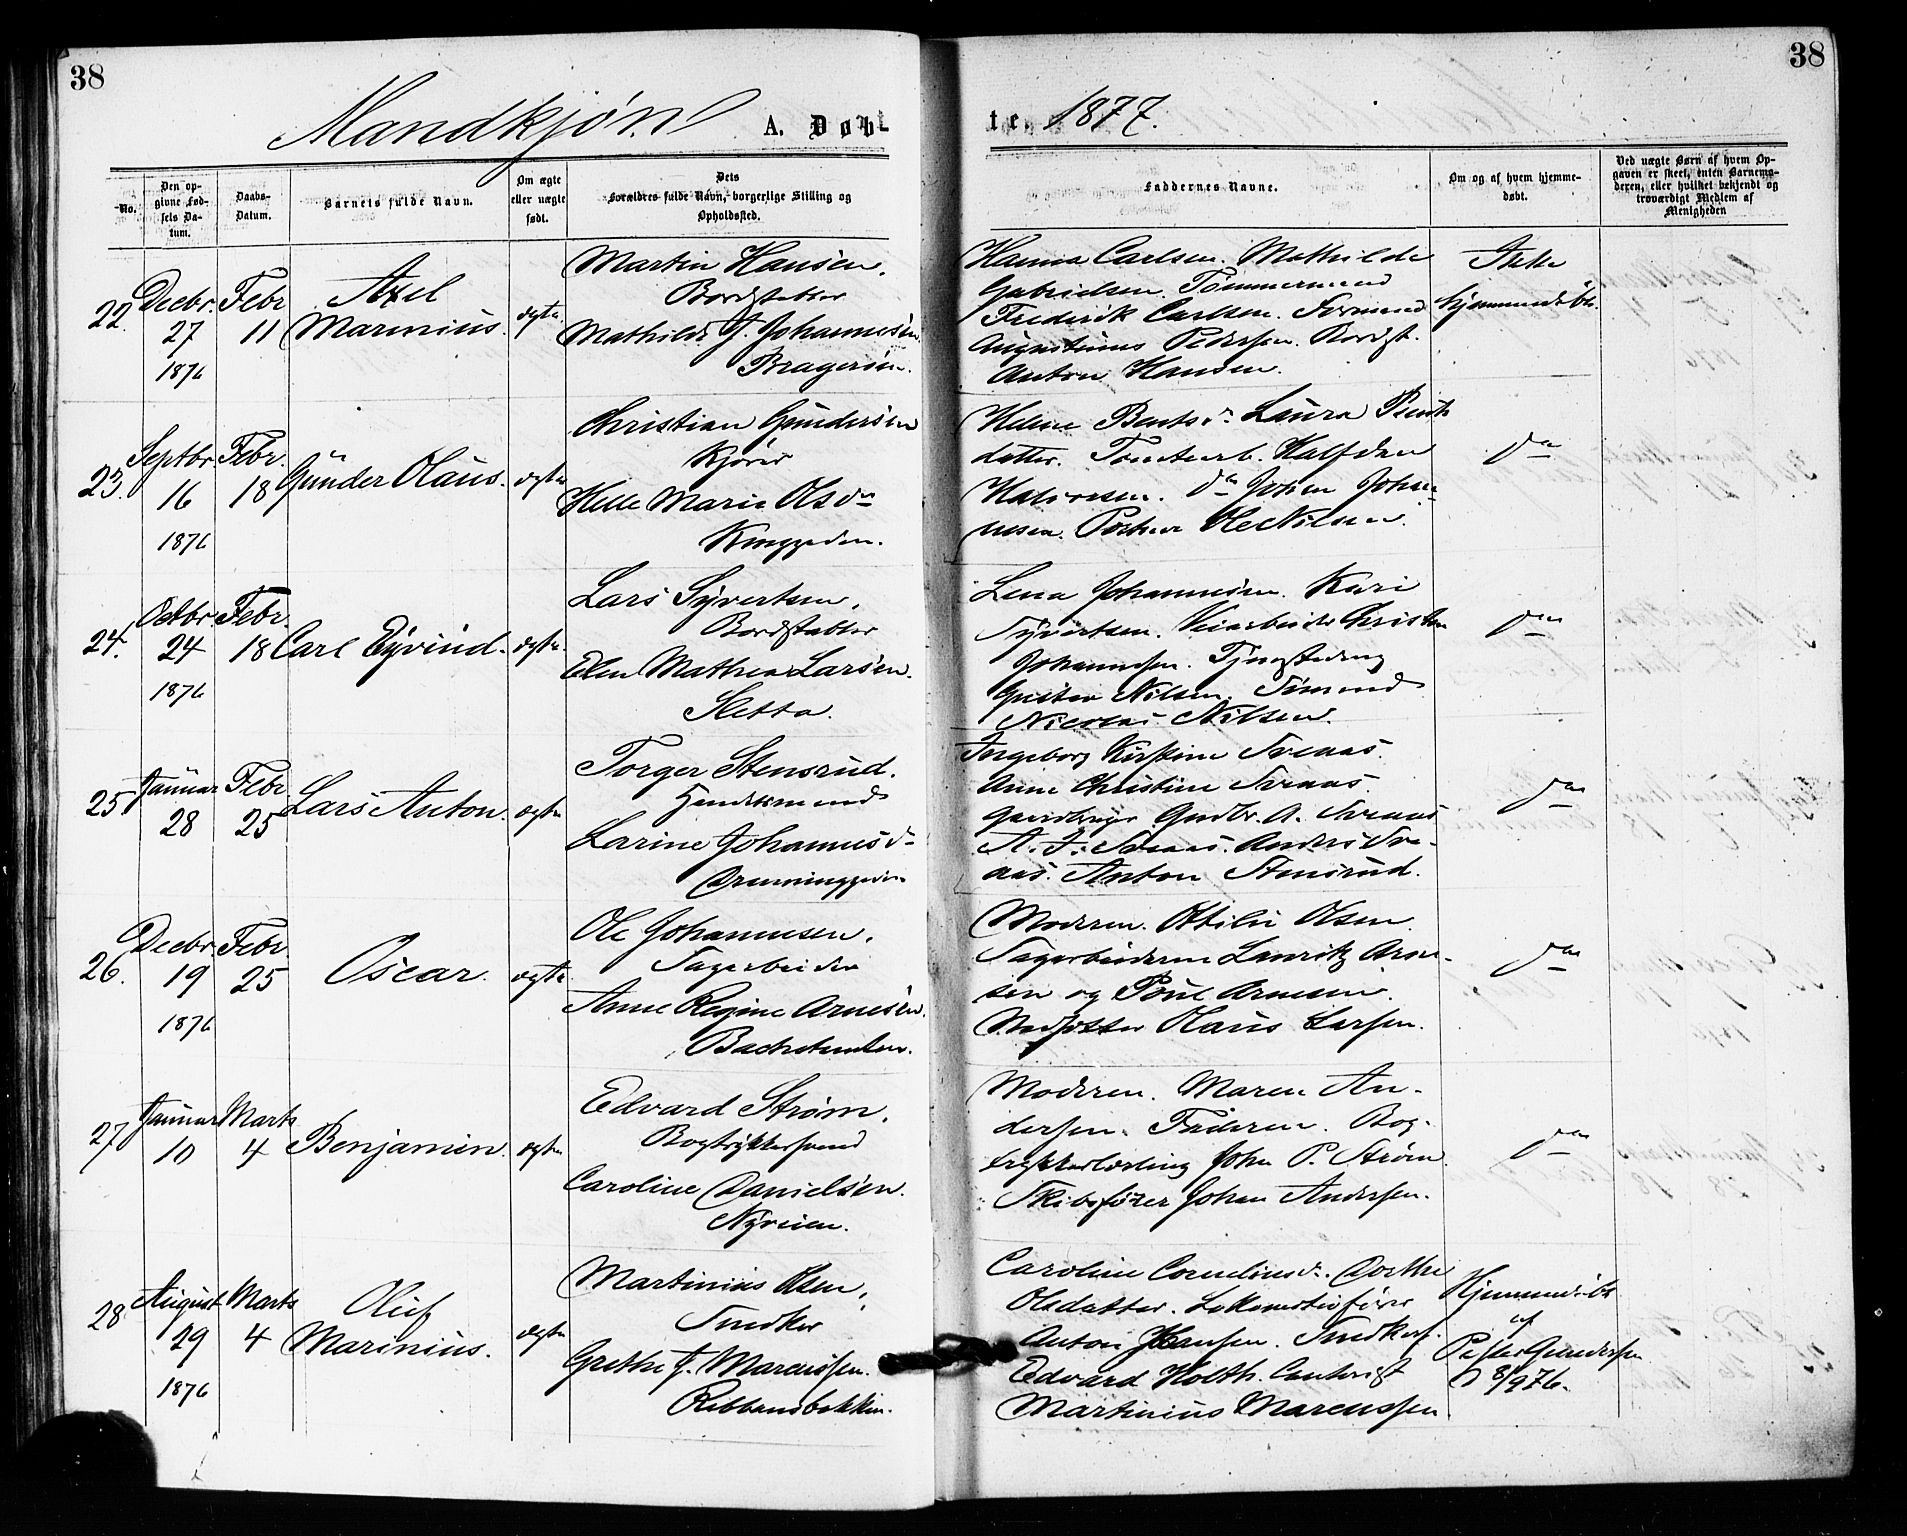 38
38
Mandkjøn A. Døbte 1877.
No.
Den opgivne Fødsels Datum.
Daabs-Datum.
Barnets fulde Navn.
Om ægte eller uægte født.
Dets Forældres fulde Navn, borgerlige Stilling og Opholdssted.
Faddernes Navne.
Om og af hvem hjemmedøbt.
Ved uægte Børn af hvem Opgaven er skeet, enten Barnemoderen, eller hvilket bekjendt og troværdigt Medlem af Menigheden
22. Decbr. 27 1876
Febr 11
Axel Marinius.
ægte.
Martin Hansen,
Bordstabler
Mathilde J. Johannesen
Bragerøen.
Hanna Carlsen. Mathilde
Gabrielsen. Tømmermænd
Frederik Carlsen. Formand
Augustinus Pedersen. Bordst.
Anton Hansen.
Ikke
hjemmedøbt.
23. Septbr. 16 1876
Febr. 18
Gunder Olaus.
ægte
Christian Gundersen
Kjører
Helle Marie Olsdr
Kruggaden.
Helene Bentsdr. Laura Bents
datter. Tomtearb. Halfdan
Halvorsen. do Johan Johan-
nesen. Ole Nilsen.
do
24. Octbr. 24 1876
Febr. 18
Carl Eyvind.
ægte.
Lars Syvertsen,
Bordstabler
Elen Mathea Larsen.
Sletta.
Lena Johannesen. Kari
Syvertsen. Veiarbeider Christen
Johannesen. Tjenestedreng
Gustav Nilsen. Sømand
Nicolai Nilsen.
do
25. Januar 28
Febr. 25
Lars Anton.
ægte
Torger Stensrud.
Handelsmand
Larine Johannesdr
Dronninggaden
Ingeborg Kirstine Sveaas.
Anne Christine Sveaas.
Gaardbruger Gudbr. A. Sveaas
A. J. Sveaas. Anders Sve-
aas. Anton Stensrud.
do
26. Decbr. 19 1876
Febr. 25
Oscar.
ægte
Ole Johannesen.
Sagarbeider
Anne Regine Arnesen.
Bachetomten.
Moderen. Ottilie Olsen.
Sagarbeiderne Lauritz Arne-
sen og Poul Arnesen.
Olaus Larsen.
do
27. Januar 10
Marts 4
Benjamin.
ægte
Edvard Strøm,
Bogtrykkersvend
Caroline Danielsen.
Nyveien.
Moderen. Maren An-
dersen. Faderen. Bog-
trykkerlærling John P. Strøm
Skibsfører Johan Andersen.
do
28. August 29 1876
Marts 4
Oluf Marinius.
ægte
Martinius Olsen,
Snedker
Grethe J. Marcussen.
Ribbansbakken.
Caroline Corneliusdr. Dorthe
Olsdatter. Lokomotivfører
Anton Hansen. Snedkers.
Edvard Holth.
Martinius Marcussen
Hjemmedøbt
af
Gundersen
8/9 76.